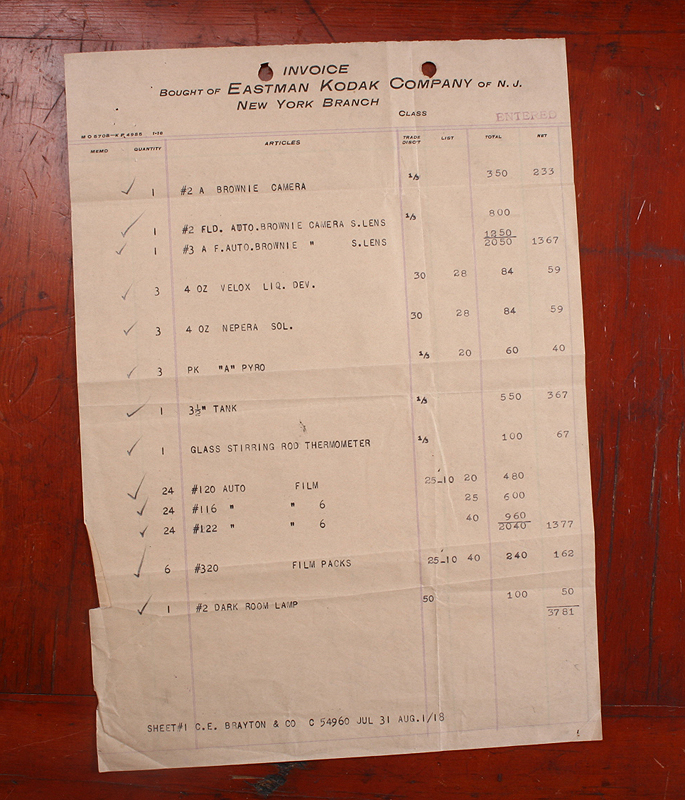 INVOICE
BOUGHT OF EASTMAN KODAK COMPANY OF N. J.
NEW YORK BRANCH
CLASS
ENTERED
M O 5708-K P 4955 1-18
MEMO QUANTITY ARTICLES TRADE DISC'T LIST TOTAL NET
1 #2 A BROWNIE CAMERA 1/3 350 233
1 #2 FLD. AUTO.BROWNIE CAMERA S.LENS 1/3 800
1250
1 #3 A F.AUTO.BROWNIE " S.LENS 2050 1367
3 4 OZ VELOX LIQ. DEV. 30 28 84 59
3 4 OZ NEPERA SOL. 30 28 84 59
3 PK "A" PYRO 1/3 20 60 40
1 3½" TANK 1/3 550 367
1 GLASS STIRRING ROD THERMOMETER 1/3 100 67
24 #120 AUTO FILM 25-10 20 480
24 #116 " " 6 25 600
24 #122 " " 6 40 960
2040 1377
6 #320 FILM PACKS 25-10 40 240 162
1 #2 DARK ROOM LAMP 50 100 50
3781
SHEET#1 C.E. BRAYTON & CO C 54960 JUL 31 AUG.1/18